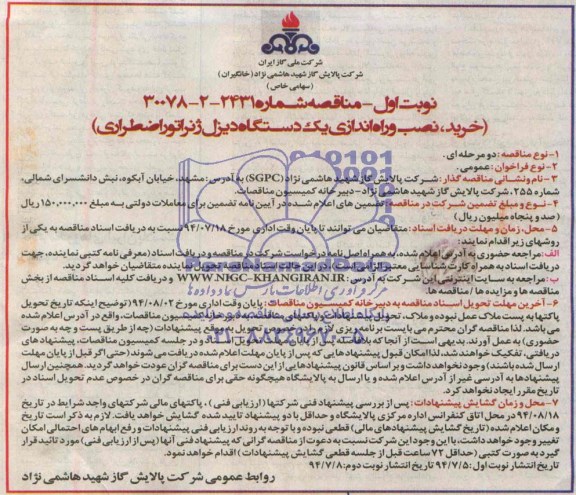 شرکت ملی گاز ایران
شرکت پالایش گاز شهید هاشمی نژاد (خانگیران)
(سهامی خاص)
نوبت اول - مناقصه شماره ۲۴۳۱-۲-۳۰۰۷۸
(خرید، نصب و راه اندازی یک دستگاه دیزل ژنراتور اضطراری)
۱- نوع مناقصه: دو مرحله ای.
۲- نوع فراخوان: عمومی
۳- نام ونشانی مناقصه گذار: شرکت پالایش گاز شهید هاشمی نژاد (SGPC) به آدرس: مشهد، خیابان آبکوه، نبش دانشسرای شمالی،
شماره ۲۵۵، شرکت پالایش گاز شهید هاشمی نژاد- دبیرخانه کمیسیون مناقصات.
۴- نوع و مبلغ تضمین شرکت در مناقصه: تضمین های اعلام شده در آیین نامه تضمین برای معاملات دولتی به مبلغ ۱۵۰,۰۰۰,۰۰۰ ریال
(صد و پنجاه میلیون ریال)
۵- محل، زمان و مهلت دریافت اسناد: متقاضیان می توانند تا پایان وقت اداری مورخ ۹۴/۰۷/۱۸ نسبت به دریافت اسناد مناقصه به یکی از
روشهای زیر اقدام نمایند:
الف: مراجعه حضوری به آدرس اعلام شده، به همراه اصل نامه درخواست شرکت در مناقصه و دریافت اسناد (معرفی نامه کتبی نماینده، جهت
دریافت اسناد به همراه کارت شناسایی معتبر الزامیست) در این حالت اسناد مناقصه تحویل نماینده متقاضیان خواهد گردید.
ب: مراجعه به سایت اینترنتی این شرکت به آدرس: WWW.NIGC-KHANGIRAN.IR و دریافت کلیه اسناد مناقصه از بخش
مناقصه ها و مزایده ها / مناقصه ها
۶- آخرین مهلت تحویل اسناد مناقصه به دبیرخانه کمیسیون مناقصات: پایان وقت اداری مورخ ۹۴/۰۸/۰۲ (توضیح اینکه تاریخ تحویل
پاکتها به پست ملاک عمل نبوده و ملاک، تحویل اسناد و پاکتهای مناقصه به دبیرخانه کمیسیون مناقصات، واقع در آدرس اعلام شده
می باشد. لذا مناقصه گران محترم می بایست برنامه ریزی لازم را در خصوص تحویل به موقع پیشنهادات (چه از طریق پست و چه به صورت
حضوری) به عمل آورند. بدیهی است از آنجا که بلافاصله پس از پایان مهلت و در جلسه کمیسیون مناقصات، پیشنهاد های
دریافتی، تفکیک خواهند شد، لذا امکان قبول پیشنهادهایی که پس از پایان مهلت اعلام شده دریافت می شوند (حتی اگر قبل از پایان مهلت
ارسال شده باشند) وجود نخواهد داشت و بر اساس قانون پیشنهادهایی از این دست برای مناقصه گران عودت خواهد گردید. همچنین ارسال
پیشنهادها به آدرسی غیر از آدرس اعلام شده و یا ارسال به پالایشگاه هیچگونه حقی برای مناقصه گران در خصوص عدم تحویل اسناد در
تاریخ مقرر ایجاد نخواهد کرد.
۷- محل و زمان گشایش پیشنهادات: پس از بررسی پیشنهاد فنی شرکتها (ارزیابی فنی)، پاکتهای مالی شرکتهای واجد شرایط در تاریخ
۹۴/۰۸/۱۸ در محل اتاق کنفرانس اداره مرکزی پالایشگاه و حداقل با دو پیشنهاد تایید شده گشایش خواهد یافت. لازم به ذکر است تاریخ
و مکان اعلام شده (تاریخ گشایش پیشنهادهای مالی) قطعی نبوده و با توجه به روند ارزیابی فنی پیشنهادات و رفع ابهام های احتمالی امکان
تغییر وجود خواهد داشت، با این وجود این شرکت نسبت به دعوت از مناقصه گرانی که پیشنهاد فنی آنها (پس از ارزیابی فنی) مورد تائید قرار
گیرد به صورت کتبی (حداقل ۷۲ ساعت قبل از جلسه قطعی گشایش پیشنهادات) اقدام خواهد نمود.
تاریخ انتشار نوبت اول: ۹۴/۷/۵ تاریخ انتشار نوبت دوم: ۹۴/۷/۸
روابط عمومی شرکت پالایش گاز شهید هاشمی نژاد